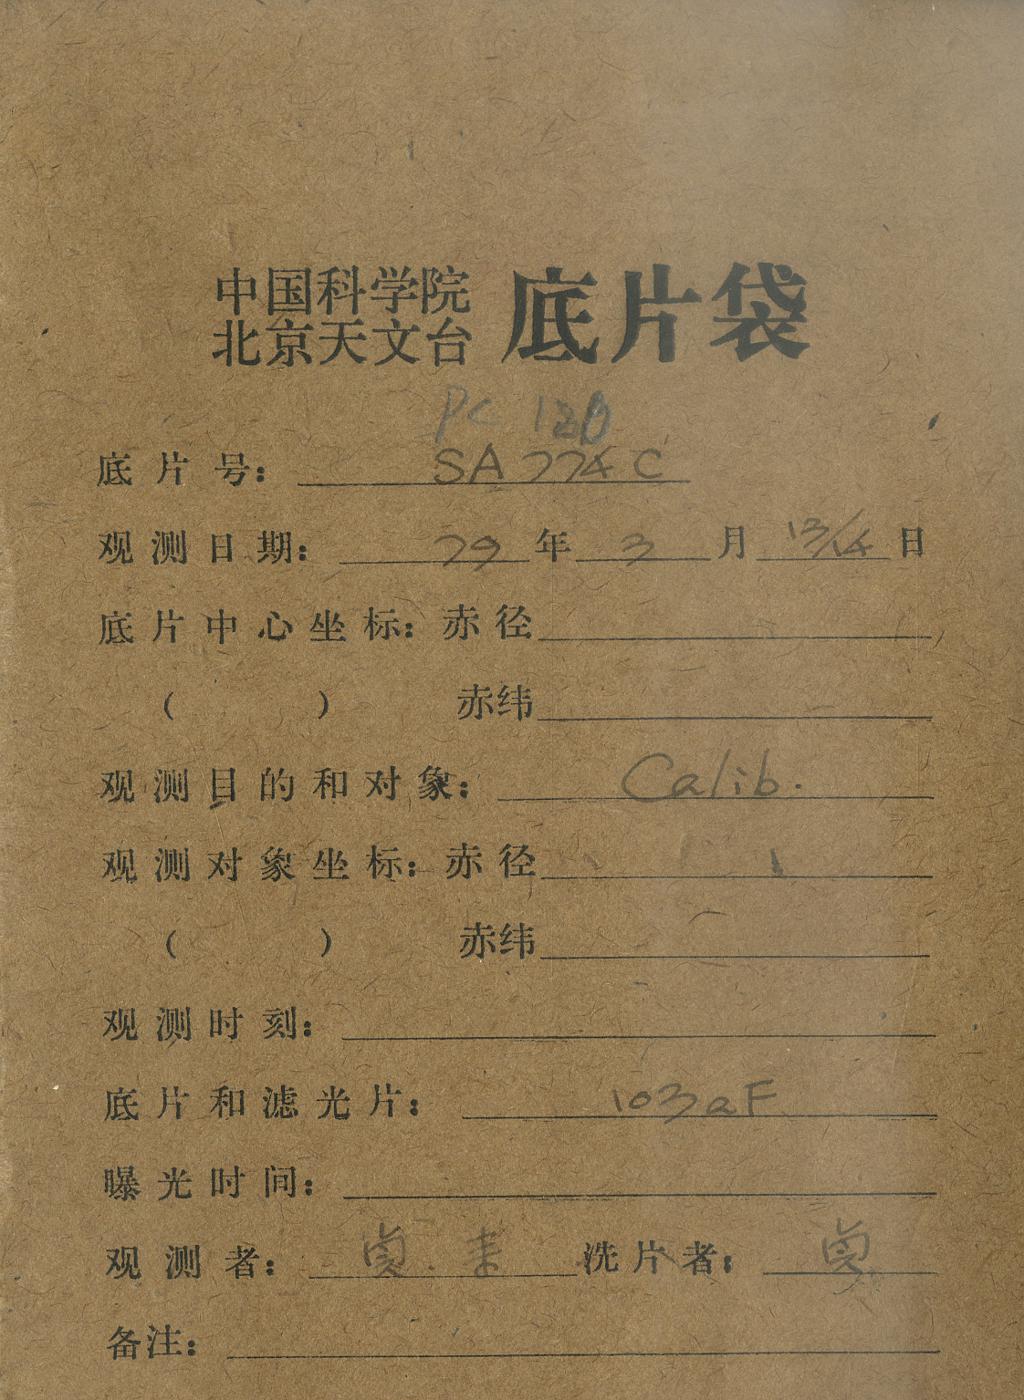 中国科学院
北京天文台 底片袋
PC 12
底片号: SA 774 C
观测日期: 79 年 3 月 13/14 日
底片中心坐标: 赤径
( ) 赤纬
观测目的和对象: Calib.
观测对象坐标: 赤径
( ) 赤纬
观测时刻:
底片和滤光片: 103aF
曝光时间:
观测者: 洗片者:
备注: